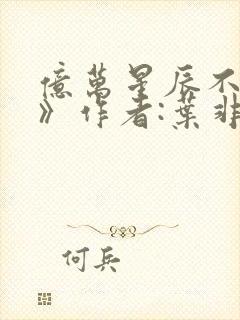 億萬星辰不
》作者:葉非
何兵